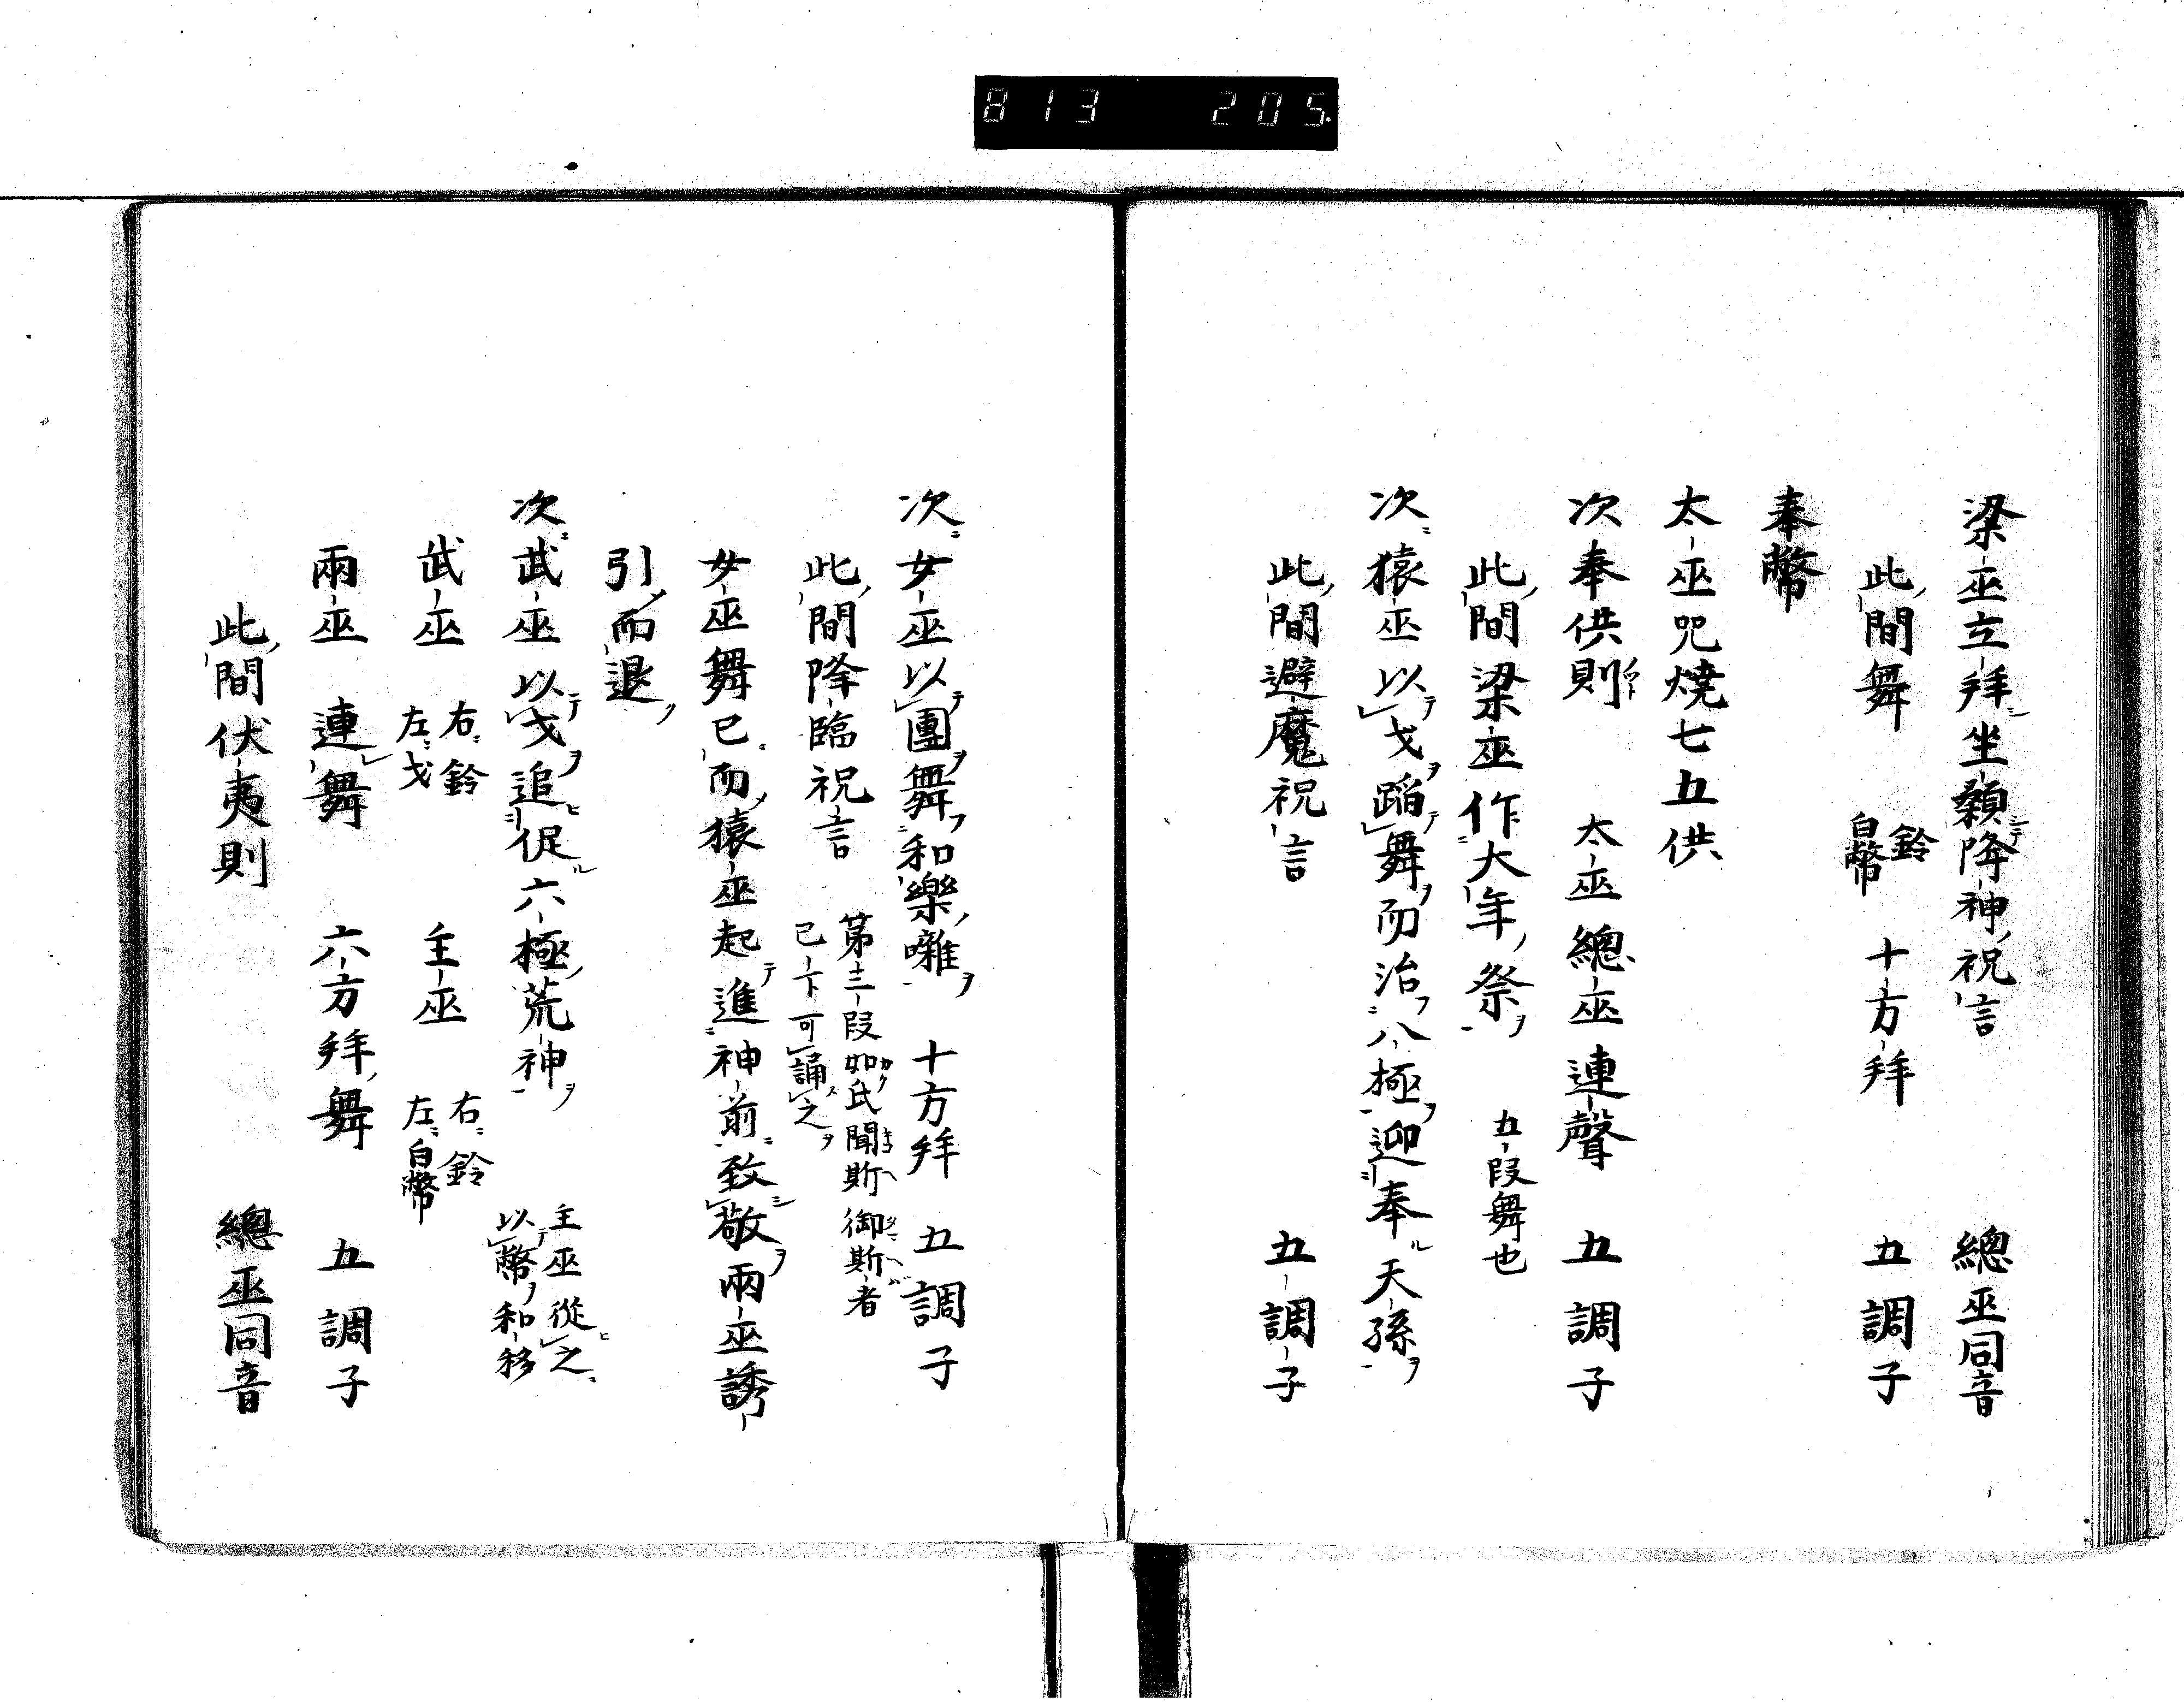 813 205.
梁巫立拜坐顙降神祝言 總巫同音
此間舞 鈴 白幣 十方拜 五調子
奉幣
太巫咒燒七五供
次奉供則 太巫總巫連聲 五調子
此間梁巫作大年祭 五段舞也
次猿巫以戈蹈舞而治八極迎奉天孫
此間避魔祝言 五調子
次女巫以團舞和樂囃 十方拜 五調子
此間降臨祝言 第三段如氏聞斯御斯者
已下可誦之
女巫舞已而猿巫起進神前致敬兩巫誘
引而退
次武巫以戈追促六極荒神 主巫從之
以幣和移
武巫 右鈴 左戈 主巫 右鈴 左白幣
兩巫 連舞 六方拜舞 五調子
此間伏夷則 總巫同音